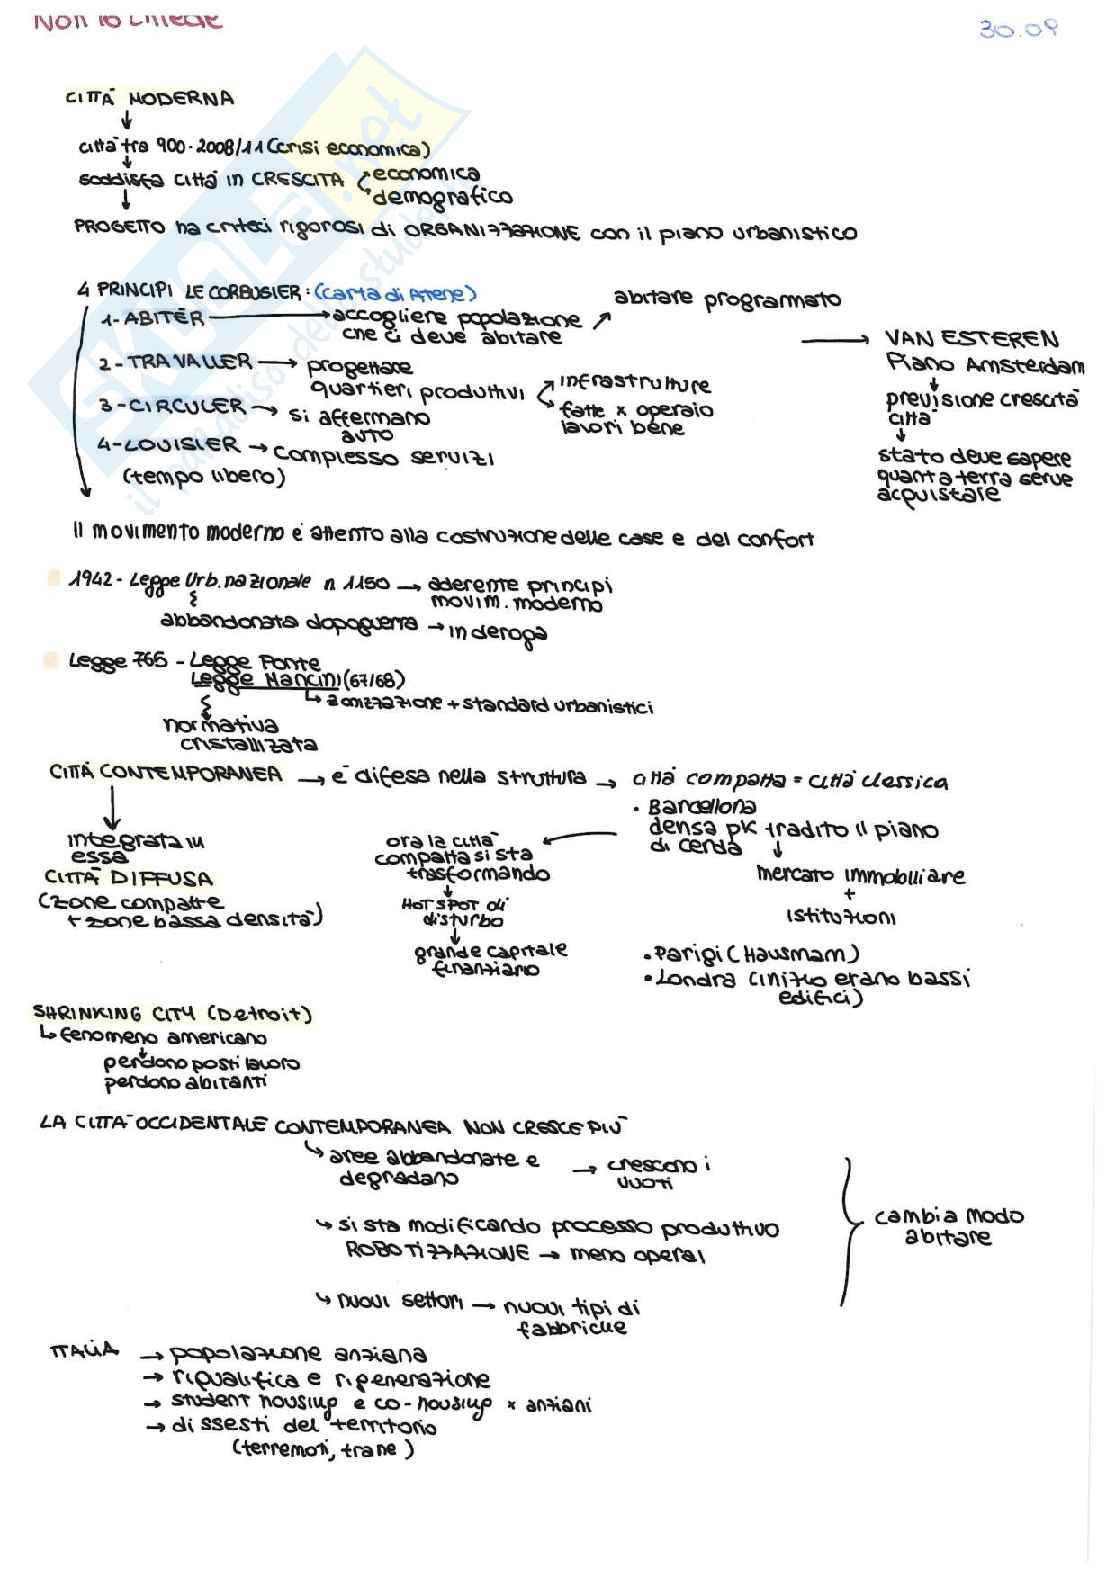 Non lo chiede
30.09
CITTÀ MODERNA
città tra 900-2008/11 (crisi economica)
soddisfa città in CRESCITA economica
demografico
PROGETTO ha criteri rigorosi di ORGANIZZAZIONE con il piano urbanistico
4 PRINCIPI LE CORBUSIER: (carta di Atene)
abitare programmato
1-ABITÈR → accogliere popolazione
che ci deve abitare
VAN ESTEREN
Piano Amsterdam
2-TRAVALLER → progettare
quartieri produttivi
infrastrutture
fatte x operaio
lavori bene
previsione crescita
città
3-CIRCULER → si affermano
auto
4-LOUISIER → complesso servizi
(tempo libero)
stato deve sapere
quanta terra serve
acquistare
Il movimento moderno è attento alla costruzione delle case e del confort
1942 - Legge Urb. nazionale n 1150 → aderente principi
movim. moderno
abbandonata dopoguerra → in deroga
Legge 765 - Legge Ponte
Legge Mancini (67/68)
zonizzazione + standard urbanistici
normativa
cristallizzata
CITTÀ CONTEMPORANEA → è difesa nella struttura → città compatta = città classica
• Barcellona
densa pk tradito il piano
di cerda
integrata in
essa
CITTÀ DIFFUSA
(zone compatte
+ zone bassa densità)
ora la città
compatta si sta
trasformando
HOT SPOT di
disturbo
grande capitale
finanziario
mercato immobiliare
+
istituzioni
• Parigi (Hausmam)
• Londra (inizio erano bassi
edifici)
SHRINKING CITY (Detroit)
fenomeno americano
perdono posti lavoro
perdono abitanti
LA CITTÀ OCCIDENTALE CONTEMPORANEA NON CRESCE PIÙ
aree abbandonate e
degradano
→ crescono i
vuoti
si sta modificando processo produttivo
ROBOTIZZAZIONE → meno operai
cambia modo
abitare
nuovi settori → nuovi tipi di
fabbriche
ITALIA → popolazione anziana
→ riqualifica e rigenerazione
→ student housing e co-housing x anziani
→ dissesti del territorio
(terremoti, frane)
SKUOLA.net
il paradiso dello studente